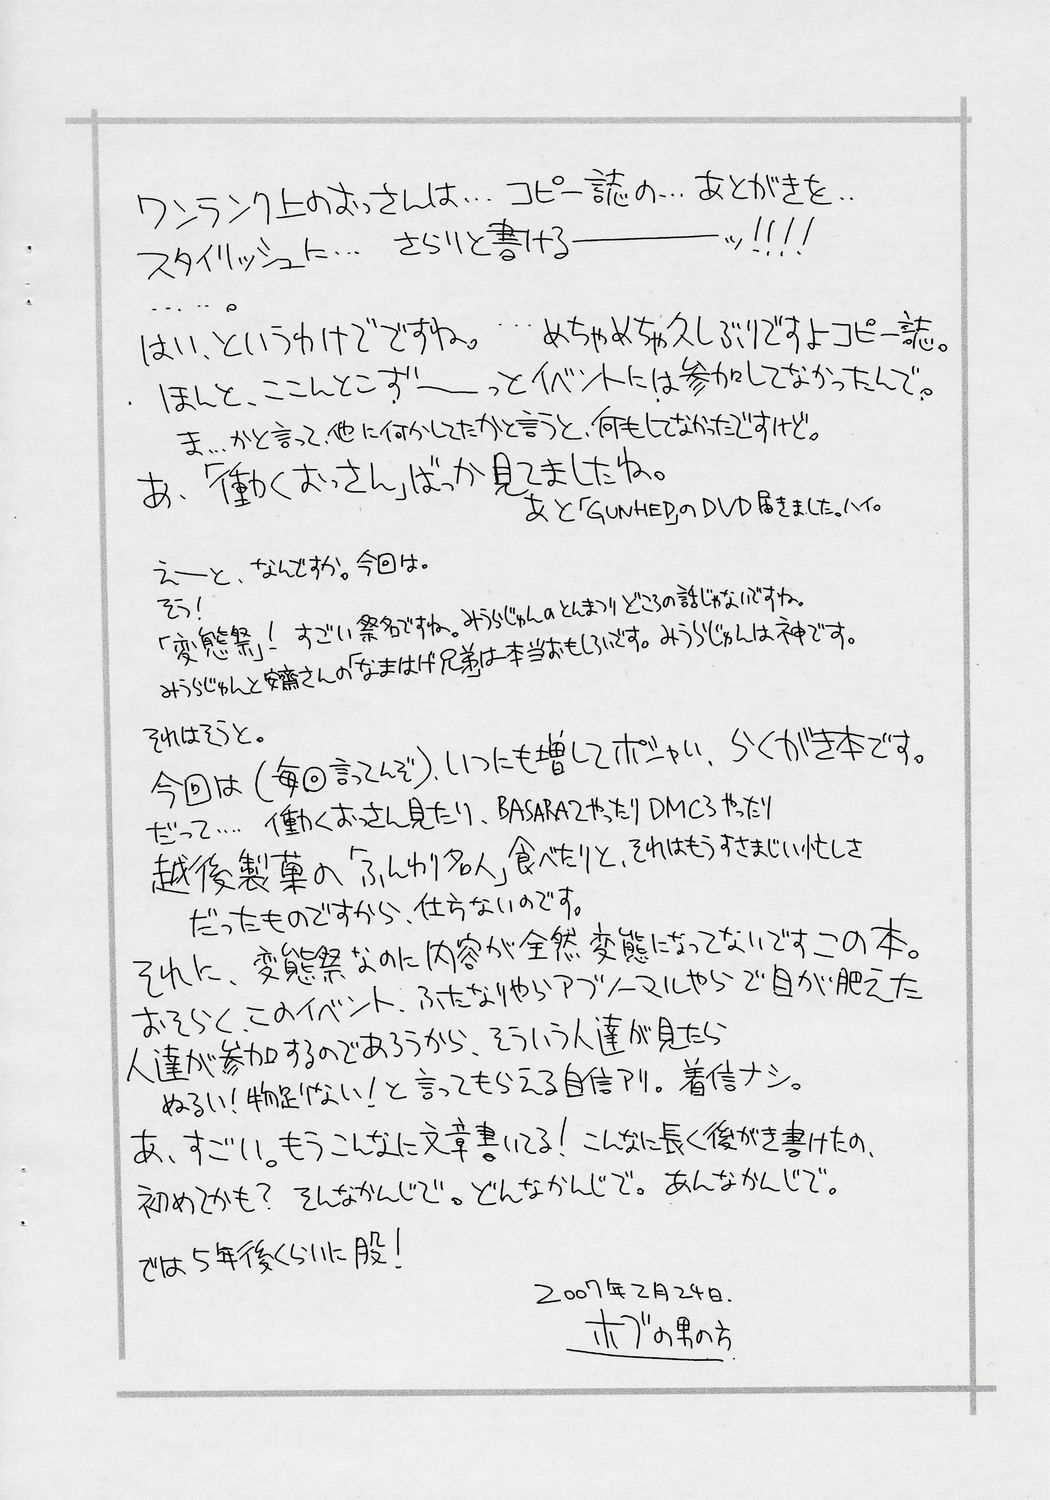 ワンランク上のおっさんは… コピー誌の… あとがきを‥
スタイリッシュに… さらりと書ける――――ッ!!!!
……。
はい、というわけでですね。 …めちゃめちゃ久しぶりですよコピー誌。
ほんと、ここんとこず～―っとイベントには参加してなかったんで。
ま…かと言って、他に何かしてたかと言うと、何もしてなかったですけど。
あ、「働くおっさん」ばっか見てましたね。
あと「GUNHED」のDVD届きました。ハイ。
えーと、なんですか。今回は。
そう!
「変態祭」! すごい祭名ですね。みうらじゅんのとんまつりどころの話じゃないですね。
みうらじゅんと安齋さんの「なまはげ兄弟」は本当おもしろいです。みうらじゅんは神です。
それはそうと。
今回は(毎回言ってんぞ)、いつにも増してボンャい、らくがき本です。
だって…. 働くおっさん見たり、BASARA2やったりDMC3やったり
越後製菓の「ふんわり名人」食べたりと、それはもうすさまじい忙しさ
だったものですから、仕方ないのです。
それに、変態祭なのに内容が全然変態になってないですこの本。
おそらく、このイベント、ふたなりやらアブノーマルやらで目が肥えた
人達が参加するのであろうから、そういう人達が見たら
ぬるい!物足りない!と言ってもらえる自信アリ。着信ナシ。
あ、すごい。もうこんなに文章書いてる! こんなに長く後がき書けたの、
初めてかも? そんなかんじで。どんなかんじで。あんなかんじで。
では5年後くらいに股!
2007年2月24日.
ホブの男の方